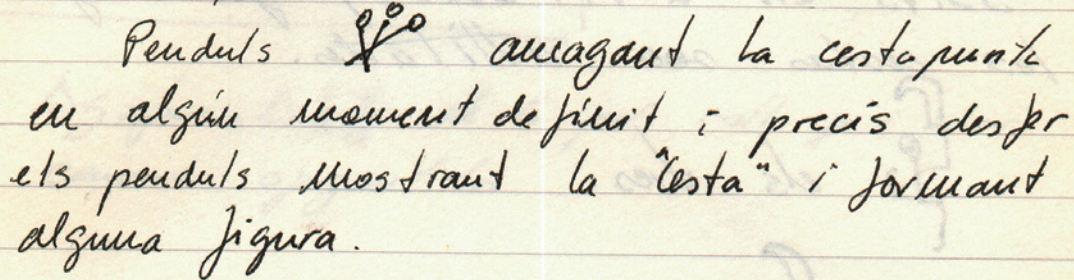 Penduls amagant la cesta punta
en algún moment definit i precís desfer
els penduls mostrant la "Cesta" i formant
alguna figura.